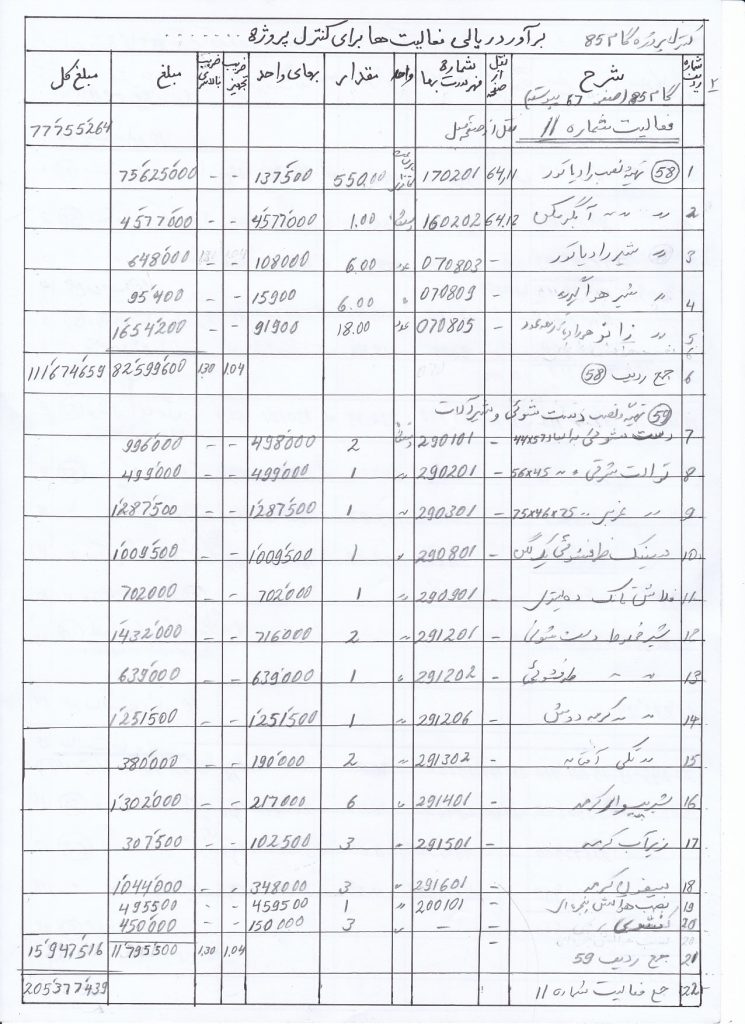 کنترل پروژه گام 85 برآورد ریالی فعالیت ها برای کنترل پروژه
شماره ردیف شرح نقل از صفحه شماره فهرست بها واحد مقدار بهای واحد ضریب تجهیز ضریب بالاسری مبلغ مبلغ کل
گام 85 (صفحه 67 پیوسته) 2
فعالیت شماره 11 نقل از صفحه قبل 77'755'264
1 (58) تهیه و نصب رادیاتور 64,11 170201 550.00 137'500 - - 75'625'000
2 " " " آبگرمکن 64,12 160202 دستگاه 1.00 4'577'000 - - 4'577'000
3 " شیر رادیاتور - 070803 عدد 6.00 108'000 - - 648'000
4 " شیر هواگیری - 070809 " 6.00 15'900 - - 95'400
5 " زانو - 070805 عدد 18.00 91'900 - - 1'654'200
6 جمع ردیف (58) 1.04 1.30 82'599'600 111'674'659
(59) تهیه و نصب دست شوئی و شیرآلات
7 دست شوئی 44x57 - 290101 دستگاه 2 498'000 - - 996'000
8 توالت شرقی " " 56x45 - 290201 " 1 499'000 - - 499'000
9 " غربی " 75x46x35 - 290301 " 1 1'287'500 - - 1'287'500
10 سینک ظرفشوئی یک لگن - 290801 " 1 1'009'500 - - 1'009'500
11 فلاش تانک ده لیتری - 290901 " 1 702'000 - - 702'000
12 شیر مخلوط دست شوئی - 291201 " 2 716'000 - - 1'432'000
13 " " ظرفشوئی - 291202 " 1 639'000 - - 639'000
14 " " کرمه دوش - 291206 " 1 1'251'500 - - 1'251'500
15 " تکی آفتابه - 291302 " 2 190'000 - - 380'000
16 شیر پیسوار کرمه - 291401 " 6 217'000 - - 1'302'000
17 زیرآب کرمه - 291501 " 3 102'500 - - 307'500
18 سیفون کرمه 291601 " 3 348'000 - - 1'044'000
19 200101 " 1 459500 - - 495500
20 کفشوی - - " 3 150.000 - - 450'000
21 جمع ردیف 59 - 1.04 1.30 11'795'500 15'947'516
22 جمع فعالیت شماره 11 205'377'439